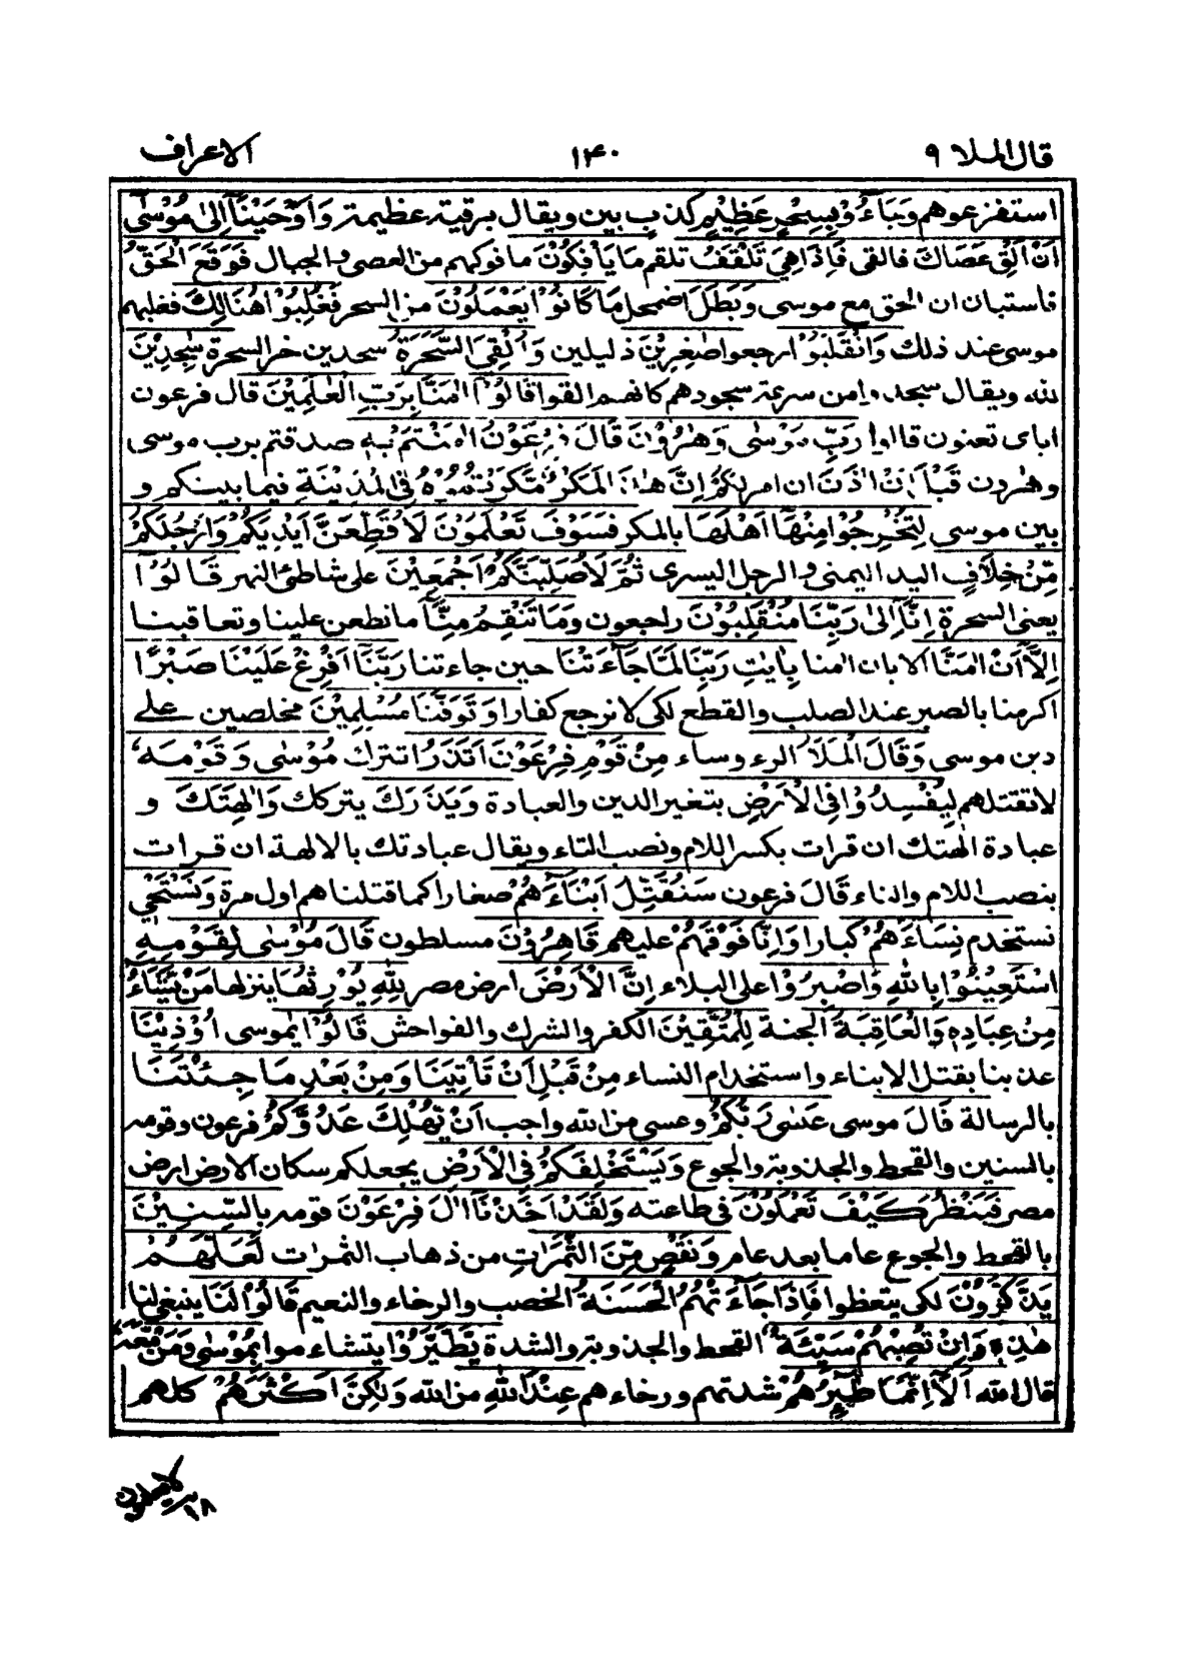 قال الملا ٩ ١٤٠ الاعراف
استفزعوهم وَجَآءُوْ بِسِحْرٍ عَظِيْمٍ كذب بين ويقال برقية عظيمة وَاَوْحَيْنَآ اِلٰى مُوْسٰٓى
اَنْ اَلْقِ عَصَاكَ فالقى فَاِذَا هِيَ تَلْقَفُ تلقم مَا يَأْفِكُوْنَ مافوكهم من العصى والحبال فَوَقَعَ الْحَقُّ
فاستبان ان الحق مع موسى وَبَطَلَ اضمحل مَا كَانُوْا يَعْمَلُوْنَ من السحر فَغُلِبُوْا هُنَالِكَ فغلبهم
موسى عند ذلك وَانْقَلَبُوْا رجعوا صٰغِرِيْنَ ذليلين وَاُلْقِيَ السَّحَرَةُ سجدين خر السحرة سٰجِدِيْنَ
لله ويقال سجدوا من سرعة سجودهم كانهم القوا قَالُوْٓا اٰمَنَّا بِرَبِّ الْعٰلَمِيْنَ قال فرعون
اياى تعنون قالوا رَبِّ مُوْسٰى وَهٰرُوْنَ قَالَ فِرْعَوْنُ اٰمَنْتُمْ بِهٖ صدقتم برب موسى
وهٰرون قَبْلَ اَنْ اٰذَنَ ان امر لَكُمْ اِنَّ هٰذَا لَمَكْرٌ مَّكَرْتُمُوْهُ فِي الْمَدِيْنَةِ فيما بينكم و
بين موسى لِتُخْرِجُوْا مِنْهَآ اَهْلَهَا بالمكر فَسَوْفَ تَعْلَمُوْنَ لَاُقَطِّعَنَّ اَيْدِيَكُمْ وَاَرْجُلَكُمْ
مِّنْ خِلَافٍ اليد اليمنى والرجل اليسرى ثُمَّ لَاُصَلِّبَنَّكُمْ اَجْمَعِيْنَ على شاطئ النهر قَالُوْٓا
يعنى السحرة اِنَّآ اِلٰى رَبِّنَا مُنْقَلِبُوْنَ راجعون وَمَا تَنْقِمُ مِنَّآ ما تطعن علينا وتعاقبنا
اِلَّآ اَنْ اٰمَنَّا الا بان اٰمنا بِاٰيٰتِ رَبِّنَا لَمَّا جَآءَتْنَا حين جاءتنا رَبَّنَآ اَفْرِغْ عَلَيْنَا صَبْرًا
اكرمنا بالصبر عند الصلب والقطع لكى لا نرجع كفارا وَتَوَفَّنَا مُسْلِمِيْنَ مخلصين على
دين موسى وَقَالَ الْمَلَاُ الرءوساء مِنْ قَوْمِ فِرْعَوْنَ اَتَذَرُ اتترك مُوْسٰى وَقَوْمَهٗ
لا تقتلهم لِيُفْسِدُوْا فِي الْاَرْضِ بتغير الدين والعبادة وَيَذَرَكَ يتركك وَاٰلِهَتَكَ و
عبادة اٰلهتك ان قرات بكسر اللام ونصب التاء ويقال عبادتك بالالهة ان قرات
بنصب اللام والتاء قَالَ فرعون سَنُقَتِّلُ اَبْنَآءَهُمْ صغارا كما قتلنا هم اول مرة وَنَسْتَحْيٖ
نستخدم نِسَآءَهُمْ كبارا وَاِنَّا فَوْقَهُمْ عليهم قَاهِرُوْنَ مسلطون قَالَ مُوْسٰى لِقَوْمِهِ
اسْتَعِيْنُوْا بِاللّٰهِ وَاصْبِرُوْا على البلاء اِنَّ الْاَرْضَ ارض مصر لِلّٰهِ يُوْرِثُهَا ينزلها مَنْ يَّشَآءُ
مِنْ عِبَادِهٖ وَالْعَاقِبَةُ الجنة لِلْمُتَّقِيْنَ الكفر والشرك والفواحش قَالُوْٓا يٰموسى اُوْذِيْنَا
عذبنا بقتل الابناء واستخدام النساء مِنْ قَبْلِ اَنْ تَأْتِيَنَا وَمِنْۢ بَعْدِ مَا جِئْتَنَا
بالرسالة قَالَ موسى عَسٰى رَبُّكُمْ وعسى من الله واجب اَنْ يُّهْلِكَ عَدُوَّكُمْ فرعون وقومه
بالسنين والقحط والجذوبة والجوع وَيَسْتَخْلِفَكُمْ فِي الْاَرْضِ يجعلكم سكان الارض ارض
مصر فَيَنْظُرَ كَيْفَ تَعْمَلُوْنَ فى طاعته وَلَقَدْ اَخَذْنَآ اٰلَ فِرْعَوْنَ قومه بِالسِّنِيْنَ
بالقحط والجوع عاما بعد عام وَنَقْصٍ مِّنَ الثَّمَرٰتِ من ذهاب الثمرات لَعَلَّهُمْ
يَذَّكَّرُوْنَ لكى يتعظوا فَاِذَا جَآءَتْهُمُ الْحَسَنَةُ الخصب والرخاء والنعيم قَالُوْا لَنَا ينبغى لنا
هٰذِهٖ وَاِنْ تُصِبْهُمْ سَيِّئَةٌ القحط والجذوبة والشدة يَّطَّيَّرُوْا يتشاءموا بِمُوْسٰى وَمَنْ مَّعَهٗ
قال الله اَلَآ اِنَّمَا طٰٓئِرُهُمْ شدتهم ورخاءهم عِنْدَ اللّٰهِ من الله وَلٰكِنَّ اَكْثَرَهُمْ كلهم